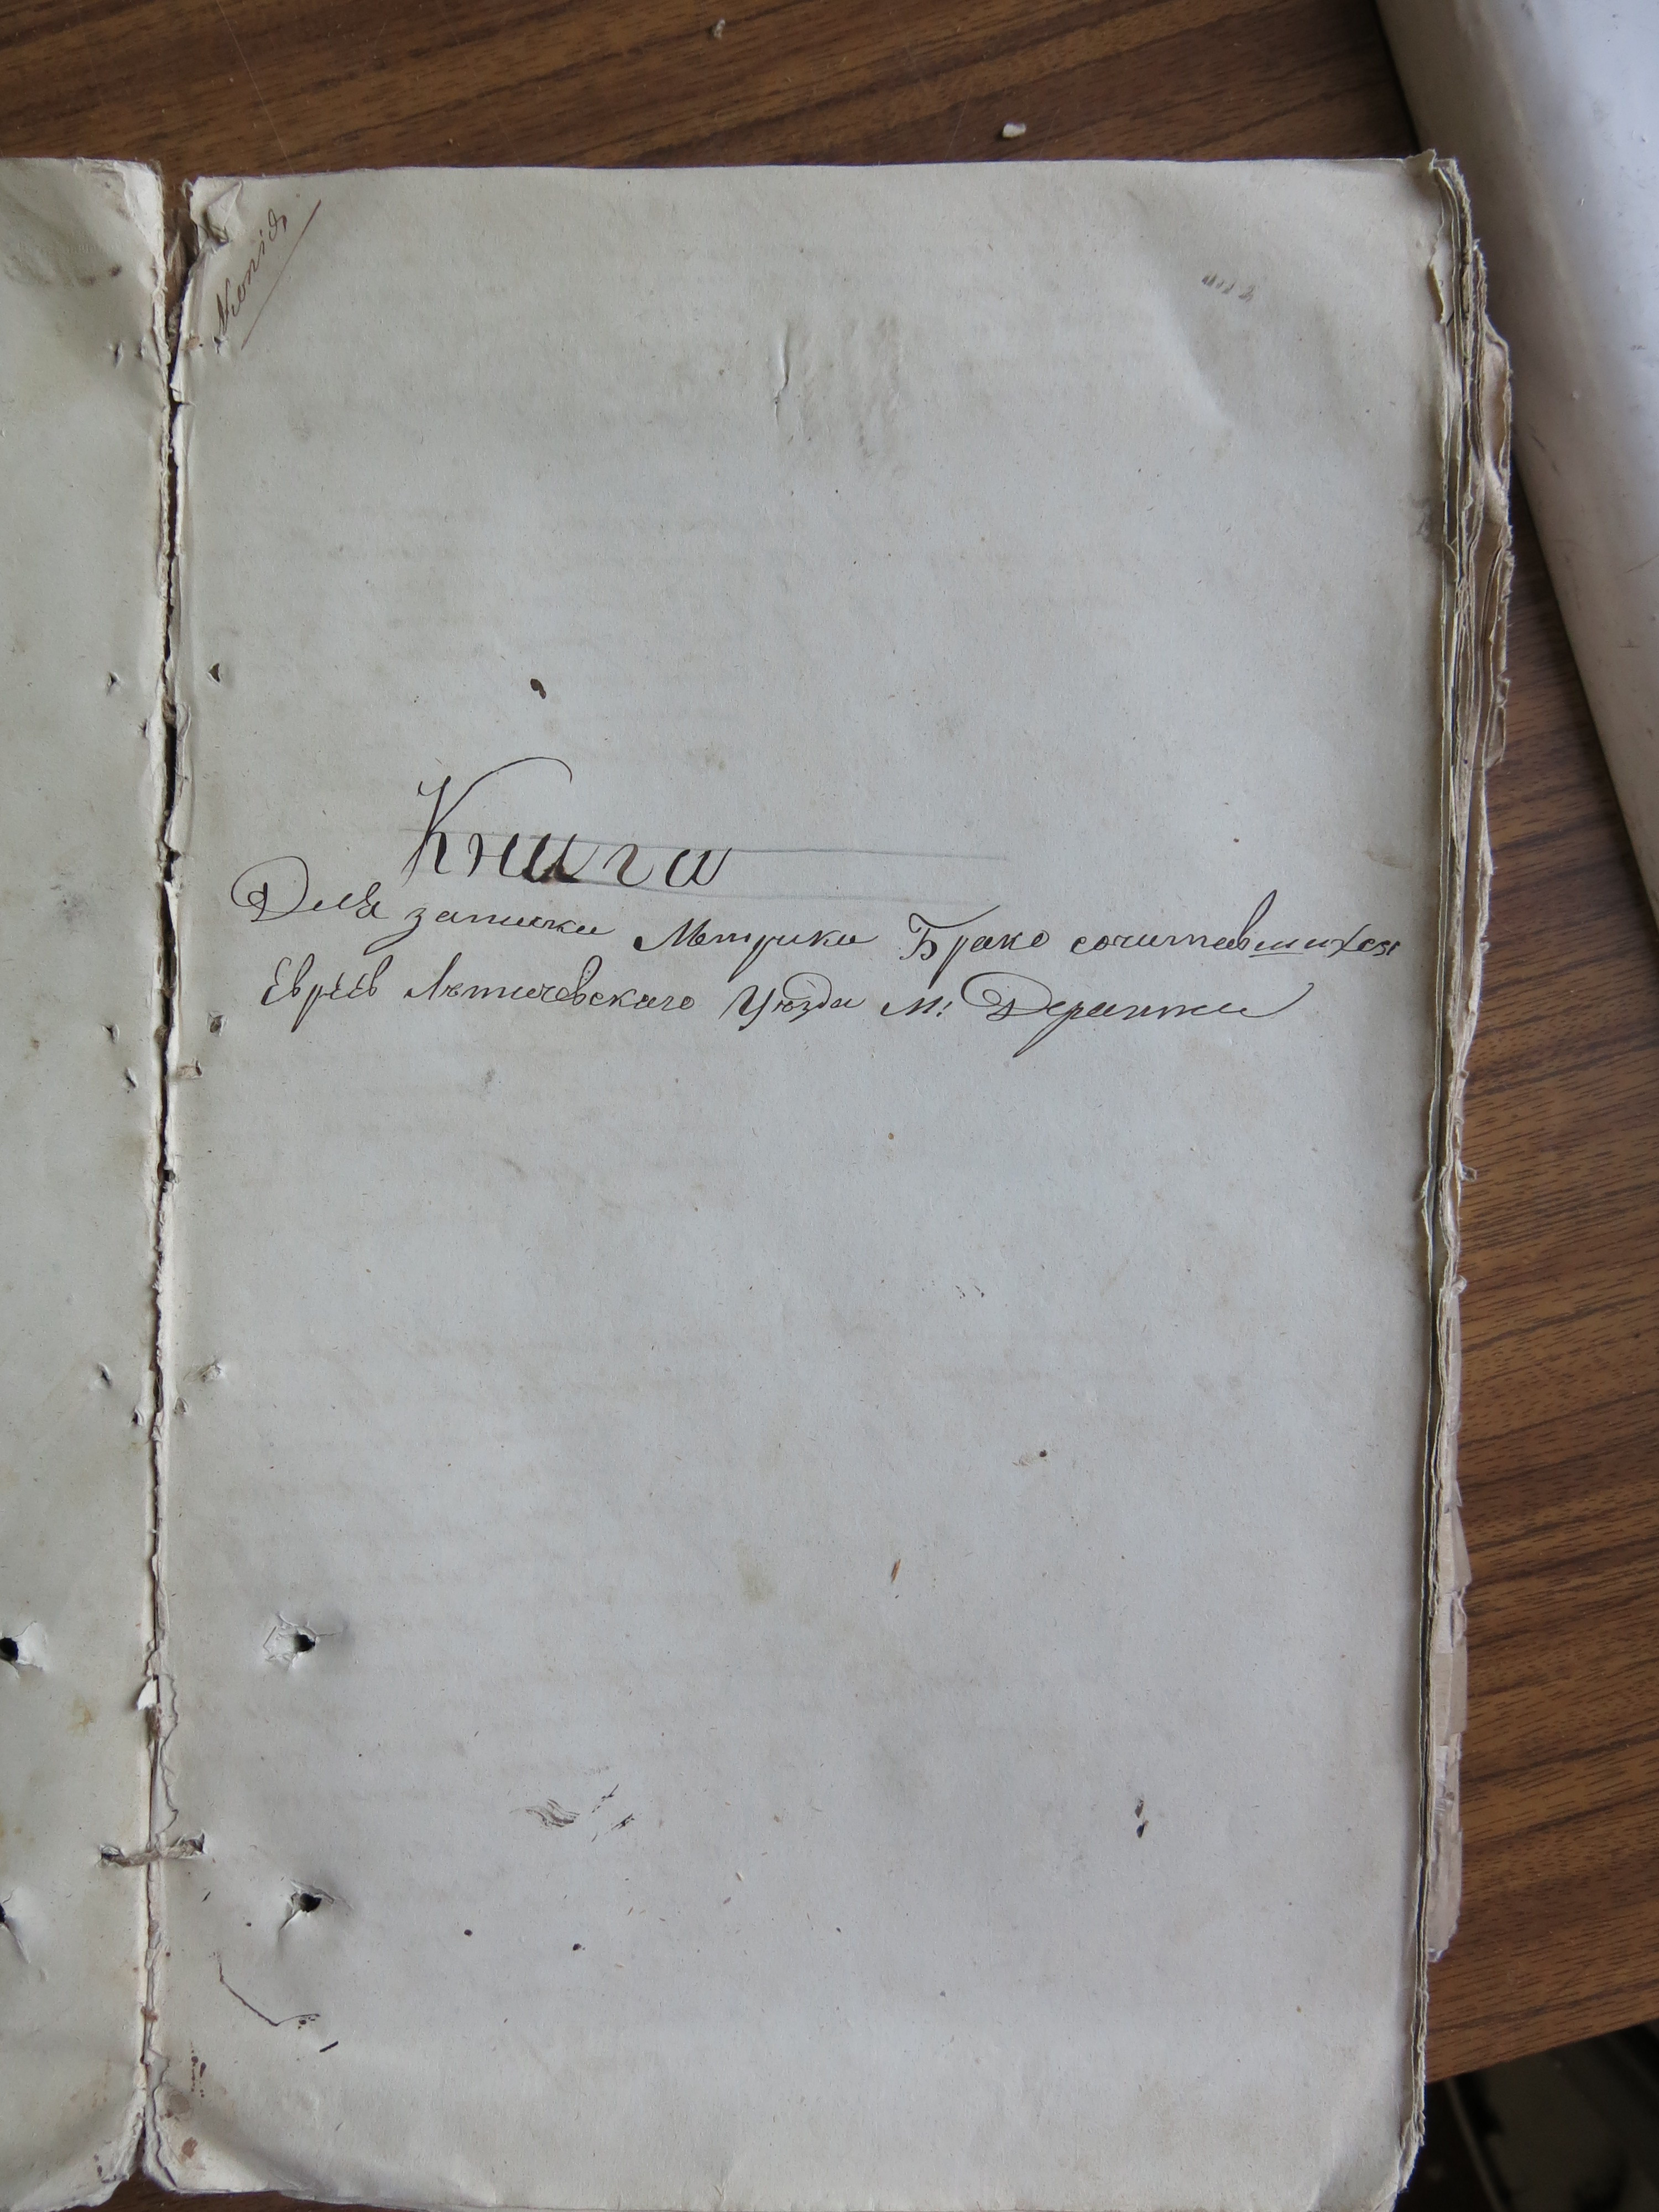 Книга
Для записки Метрики Брако сочитавшихся
Евреев Летичевскаго Уезда М: Деражни